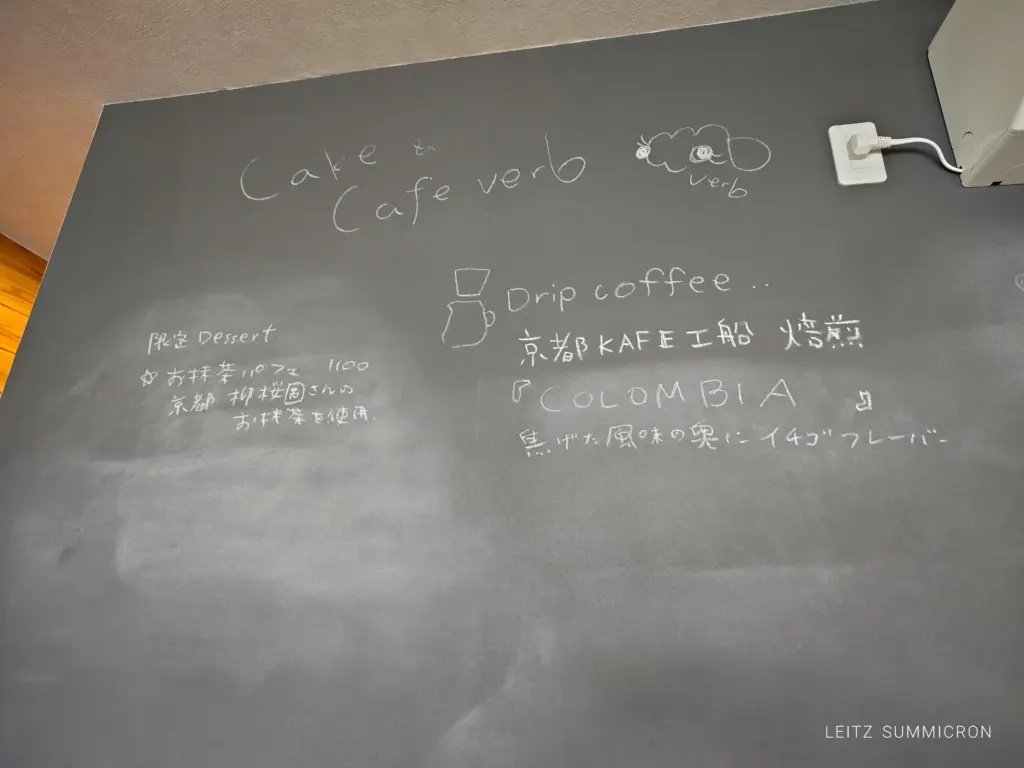 Cake &
Cafe verb
verb
Drip coffee ..
京都 KAFE工船 焙煎
『COLOMBIA』
焦げた風味の奥にイチゴフレーバー
限定 Dessert
☆ お抹茶パフェ 1100
京都 柳桜園さんの
お抹茶を使用
LEITZ SUMMICRON